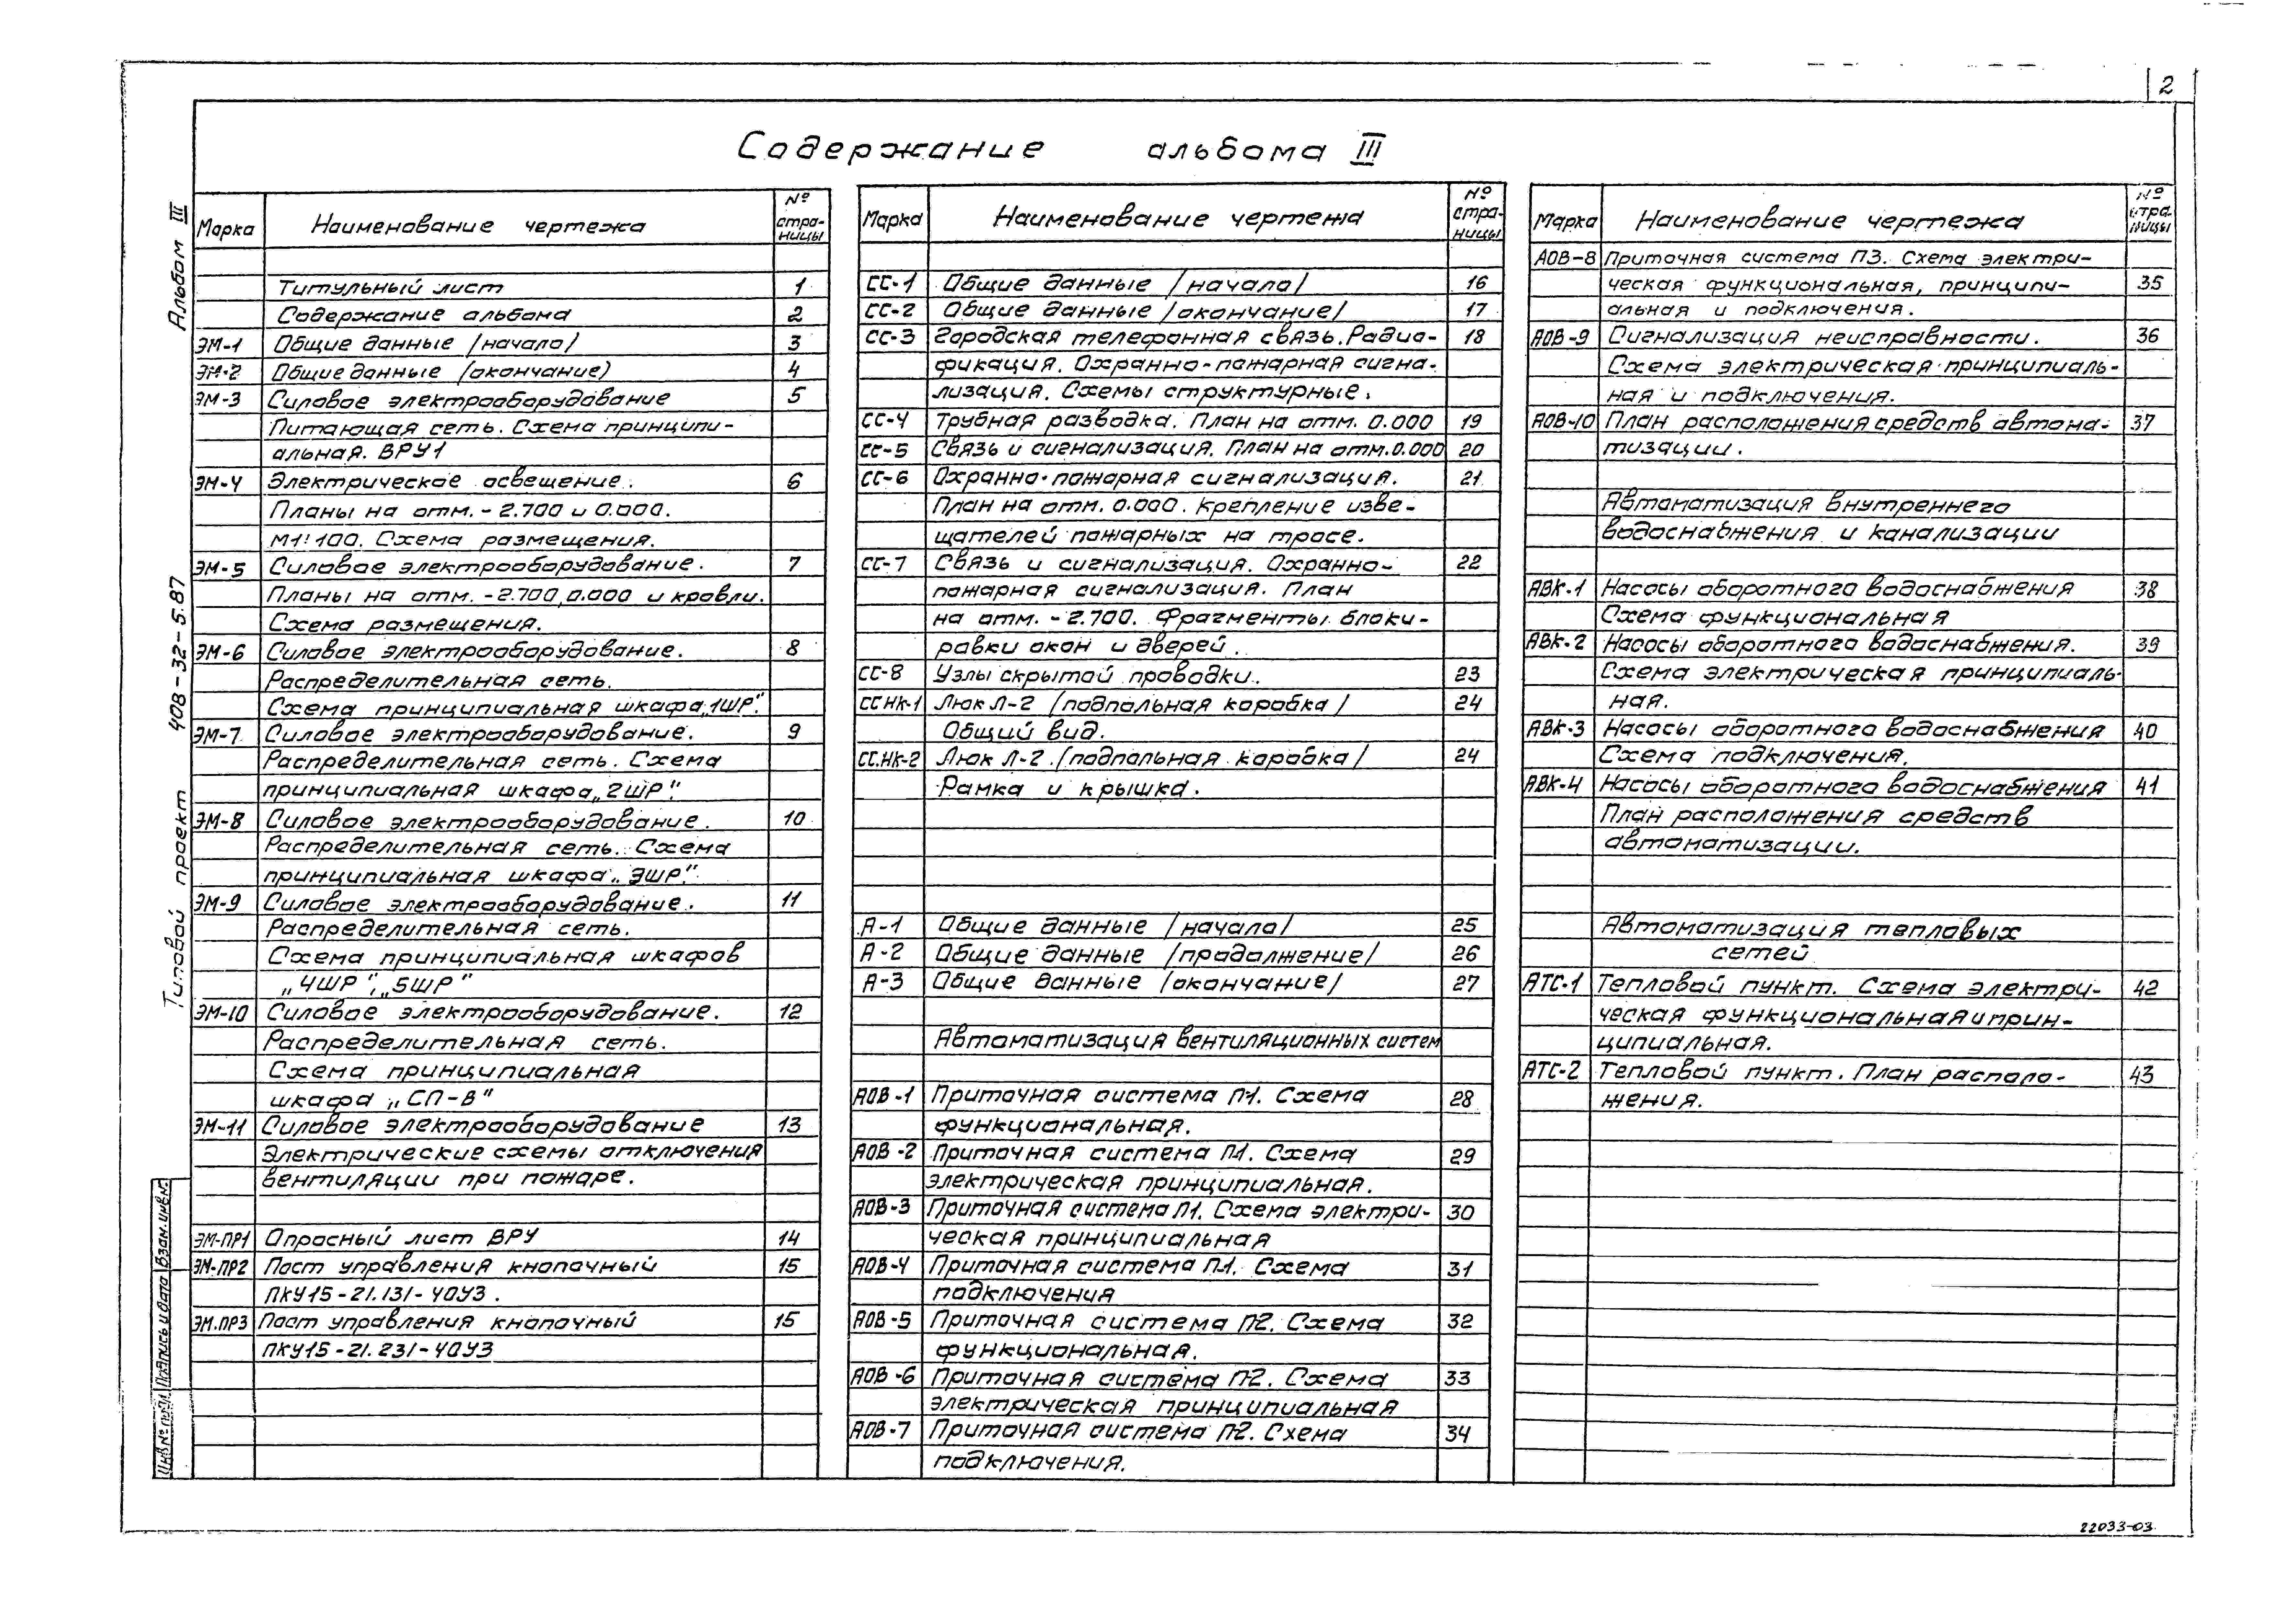 2
Содержание альбома III
Марка Наименование чертежа № стра-ницы
Титульный лист 1
Содержание альбома 2
ЭМ-1 Общие данные /начало/ 3
ЭМ-2 Общие данные /окончание/ 4
ЭМ-3 Силовое электрооборудование 5
Питающая сеть. Схема принципи-
альная. ВРУ1
ЭМ-4 Электрическое освещение. 6
Планы на отм. -2.700 и 0.000.
М1:100. Схема размещения.
ЭМ-5 Силовое электрооборудование. 7
Планы на отм. -2.700, 0.000 и кровли.
Схема размещения.
ЭМ-6 Силовое электрооборудование. 8
Распределительная сеть.
Схема принципиальная шкафа „1ШР".
ЭМ-7 Силовое электрооборудование. 9
Распределительная сеть. Схема
принципиальная шкафа „2ШР".
ЭМ-8 Силовое электрооборудование. 10
Распределительная сеть. Схема
принципиальная шкафа „3ШР".
ЭМ-9 Силовое электрооборудование. 11
Распределительная сеть.
Схема принципиальная шкафов
„4ШР", „5ШР"
ЭМ-10 Силовое электрооборудование. 12
Распределительная сеть.
Схема принципиальная
шкафа „СП-В"
ЭМ-11 Силовое электрооборудование 13
Электрические схемы отключения
вентиляции при пожаре.
ЭМ-ПР1 Опросный лист ВРУ 14
ЭМ.ПР2 Пост управления кнопочный 15
ПКУ15-21.131-40У3.
ЭМ.ПР3 Пост управления кнопочный 15
ПКУ15-21.231-40У3
Марка Наименование чертежа № стра-ницы
СС-1 Общие данные /начало/ 16
СС-2 Общие данные /окончание/ 17
СС-3 Городская телефонная связь. Радио- 18
фикация. Охранно-пожарная сигна-
лизация. Схемы структурные.
СС-4 Трубная разводка. План на отм. 0.000 19
СС-5 Связь и сигнализация. План на отм. 0.000 20
СС-6 Охранно-пожарная сигнализация. 21
План на отм. 0.000. Крепление изве-
щателей пожарных на тросе.
СС-7 Связь и сигнализация. Охранно- 22
пожарная сигнализация. План
на отм. -2.700. Фрагменты блоки-
равки окон и дверей.
СС-8 Узлы скрытой проводки. 23
СС.НК-1 Люк Л-2 /подпольная коробка/ 24
Общий вид.
СС.НК-2 Люк Л-2 /подпольная коробка/ 24
Рамка и крышка.
А-1 Общие данные /начало/ 25
А-2 Общие данные /продолжение/ 26
А-3 Общие данные /окончание/ 27
Автоматизация вентиляционных систем
АОВ-1 Приточная система П1. Схема 28
функциональная.
АОВ-2 Приточная система П1. Схема 29
электрическая принципиальная.
АОВ-3 Приточная система П1. Схема электри- 30
ческая принципиальная
АОВ-4 Приточная система П1. Схема 31
подключения
АОВ-5 Приточная система П2. Схема 32
функциональная.
АОВ-6 Приточная система П2. Схема 33
электрическая принципиальная
АОВ-7 Приточная система П2. Схема 34
подключения.
Марка Наименование чертежа № стра-ницы
АОВ-8 Приточная система П3. Схема электри-
ческая функциональная, принципи- 35
альная и подключения.
АОВ-9 Сигнализация неисправности. 36
Схема электрическая принципиаль-
ная и подключения.
АОВ-10 План расположения средств автома- 37
тизации.
Автоматизация внутреннего
водоснабжения и канализации
АВК-1 Насосы оборотного водоснабжения 38
Схема функциональная
АВК-2 Насосы оборотного водоснабжения. 39
Схема электрическая принципиаль-
ная.
АВК-3 Насосы оборотного водоснабжения 40
Схема подключения.
АВК-4 Насосы оборотного водоснабжения 41
План расположения средств
автоматизации.
Автоматизация тепловых
сетей
АТС-1 Тепловой пункт. Схема электри- 42
ческая функциональная и прин-
ципиальная.
АТС-2 Тепловой пункт. План располо- 43
жения.
Типовой проект 408-32-5.87 Альбом III
Инв № подл Подпись и дата Взам. инв №.
22033-03